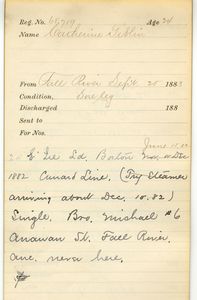 Reg. No. 65719 Age 24
Name Catherine
From Fall River Sept 20 1883
Condition, 
Discharged 188
Sent to
For Nos.
Ld. Boston
1882 Cunard Line. (Try Steamer
arriving about Dec. 10. 82)
Single. Bro. Michael #6
Anawan St. Fall River.
never here.